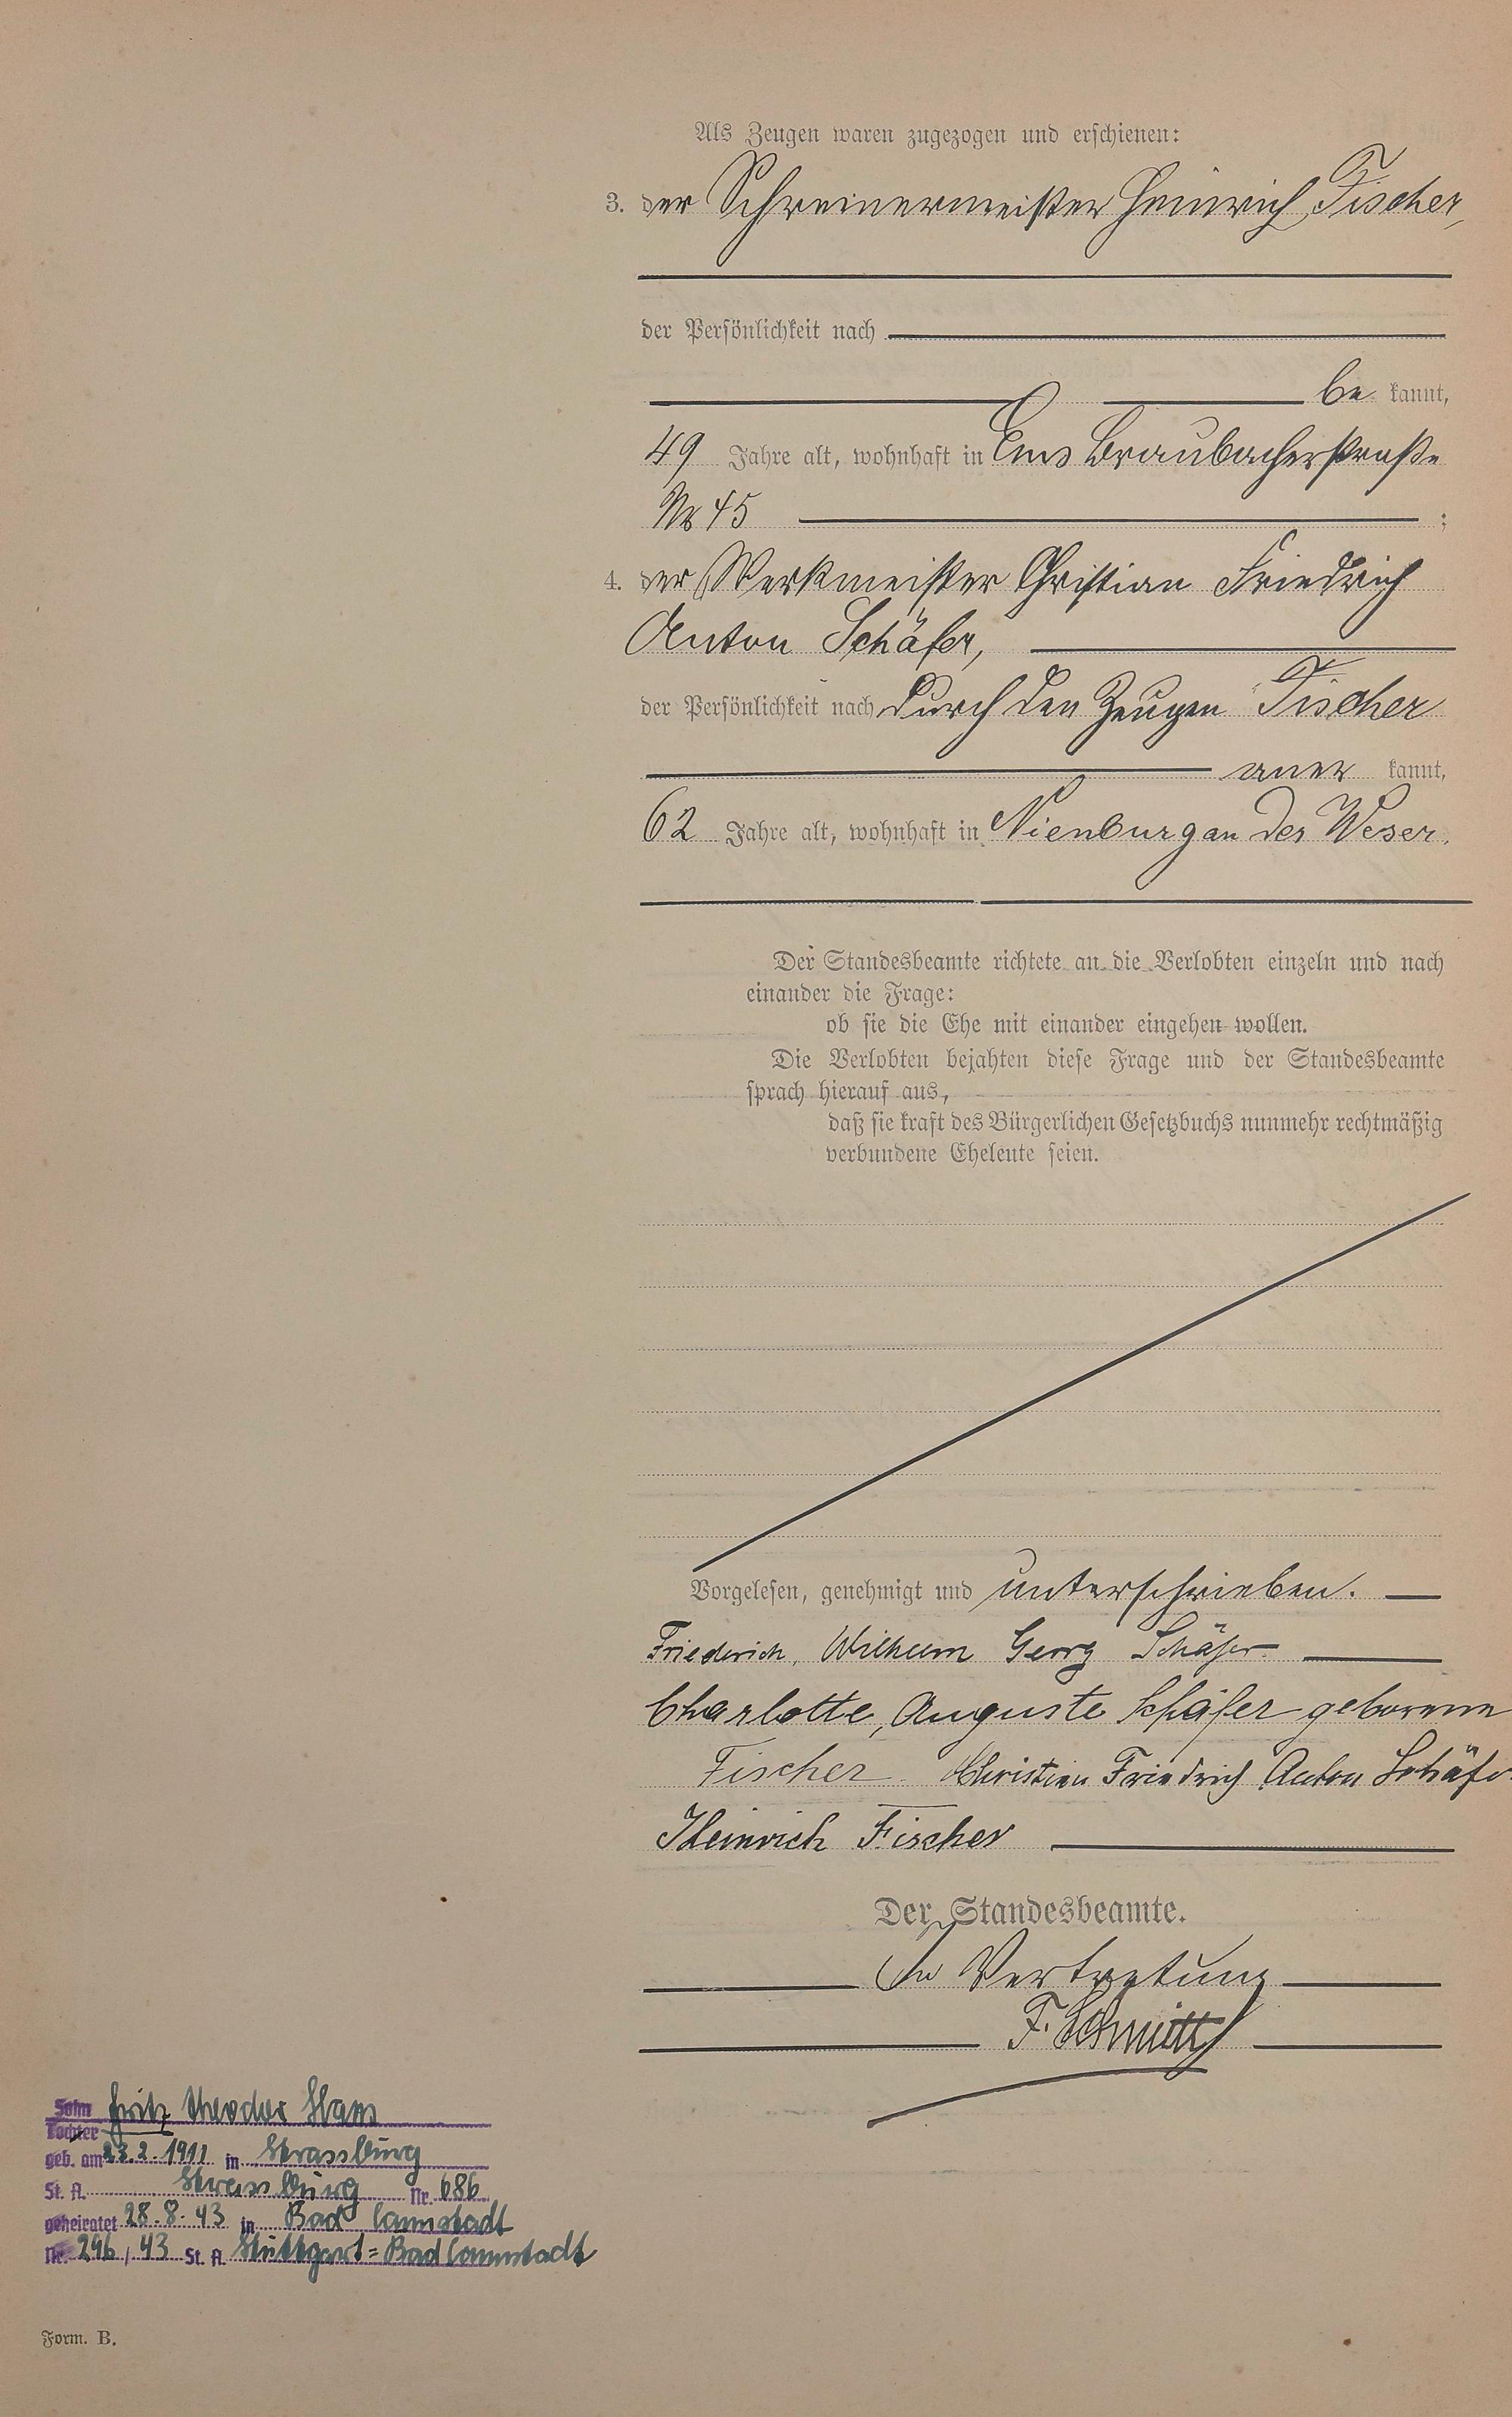 Als Zeugen waren zugezogen und erschienen:
3. der Schreinermeister Heinrich Fischer,
der Persönlichkeit nach
be kannt,
49 Jahre alt, wohnhaft in Ems Braubacherstraße
Nr 45 ;
4. der Werkmeister Christian Friedrich
Anton Schäfer,
der Persönlichkeit nach durch den Zeugen Fischer
aner kannt,
62 Jahre alt, wohnhaft in Nienburg an der Weser.
Der Standesbeamte richtete an die Verlobten einzeln und nach
einander die Frage:
ob sie die Ehe mit einander eingehen wollen.
Die Verlobten bejahten diese Frage und der Standesbeamte
sprach hierauf aus,
daß sie kraft des Bürgerlichen Gesetzbuchs nunmehr rechtmäßig
verbundene Eheleute seien.
Vorgelesen, genehmigt und unterschrieben.
Friederich, Wilhelm Georg Schäfer
Charlotte, Auguste Schäfer geborene
Fischer. Christian Friedrich Anton Schäfer
Heinrich Fischer
Der Standesbeamte.
In Vertretung
F. Schmitt
Sohn Fritz Theodor Hans
Tochter
geb. am 23.2.1911 in Strassburg
St. A. Strassburg Nr. 686
geheiratet 28.8.43 in Bad Cannstadt
Nr. 296/43 St. A. Stuttgart=Bad Cannstadt
Form. B.